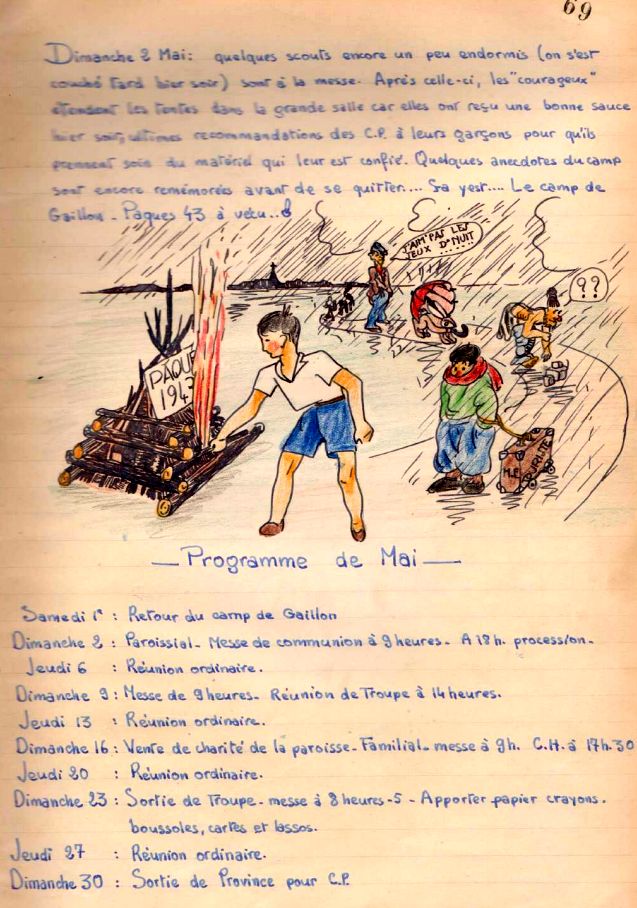 69
Dimanche 2 Mai: quelques scouts encore un peu endormis (on s'est
couché tard hier soir) sont à la messe. Après celle-ci, les "courageux"
étendent les tentes dans la grande salle car elles ont reçu une bonne sauce
hier soir, ultimes recommandations des C.P. à leurs garçons pour qu'ils
prennent soin du matériel qui leur est confié. Quelques anecdotes du camp
sont encore remémorées avant de se quitter.... Sa yest.... Le camp de
Gaillon - Pâques 43 à vécu..
J'AIM'PAS LES
JEUX D'NUIT
......
??
PAQUE
1943
M.P.
— Programme de Mai —
Samedi 1r : Retour du camp de Gaillon
Dimanche 2 : Paroissial - Messe de communion à 9 heures - A 18 h. procession -
Jeudi 6 : Réunion ordinaire.
Dimanche 9 : Messe de 9 heures - Réunion de Troupe à 14 heures.
Jeudi 13 : Réunion ordinaire.
Dimanche 16 : Vente de charité de la paroisse - Familial - messe à 9h. C.H. à 17h.30
Jeudi 20 : Réunion ordinaire.
Dimanche 23 : Sortie de Troupe - messe à 8 heures-5 - Apporter papier crayons.
boussoles, cartes et lassos.
Jeudi 27 : Réunion ordinaire.
Dimanche 30 : Sortie de Province pour C.P.